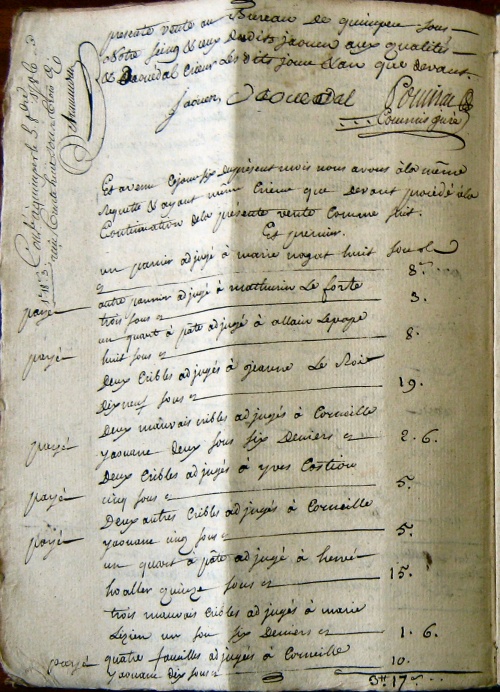 presente vente au Bureau de quimper sous
Notre seing & ceux desdits jaouen aux qualités
& jaouédal crieur lesdits jour & an que devant.
jaouen, jaouédal
Commis juré
Et avenu ce jour six du présent mois nous avons à la même
requette & ayant même Crieur que devant procédé à la
Continuation de la présente vente comme suit.
Et premier.
un panier adjugé à marie huit sous
8.
autre panier adjugé à mathurin Le forte
payé trois sous 3.
un quart à pâte adjugé à allain Lepape
payé huit sous 8.
Deux Cribles adjugés à jeanne Le Roi
Dixneuf sous 19.
Deux mauvais cribles adjugés à Corneille
payé yaouanc deux sous six Deniers 2. 6.
Deux Cribles adjugés à yves Costiou
payé cinq sous 5.
Deux autres Cribles adjugés à Corneille
payé yaouanc cinq sous 5.
un quart à pâte adjugé à hervé
hoaller quinze sous 15.
trois mauvais Cribles adjugés à marie
un sou six Deniers 1. 6.
payé quatre faucilles adjugés à Corneille
yaouanc dix sous 10.
3tt 17s